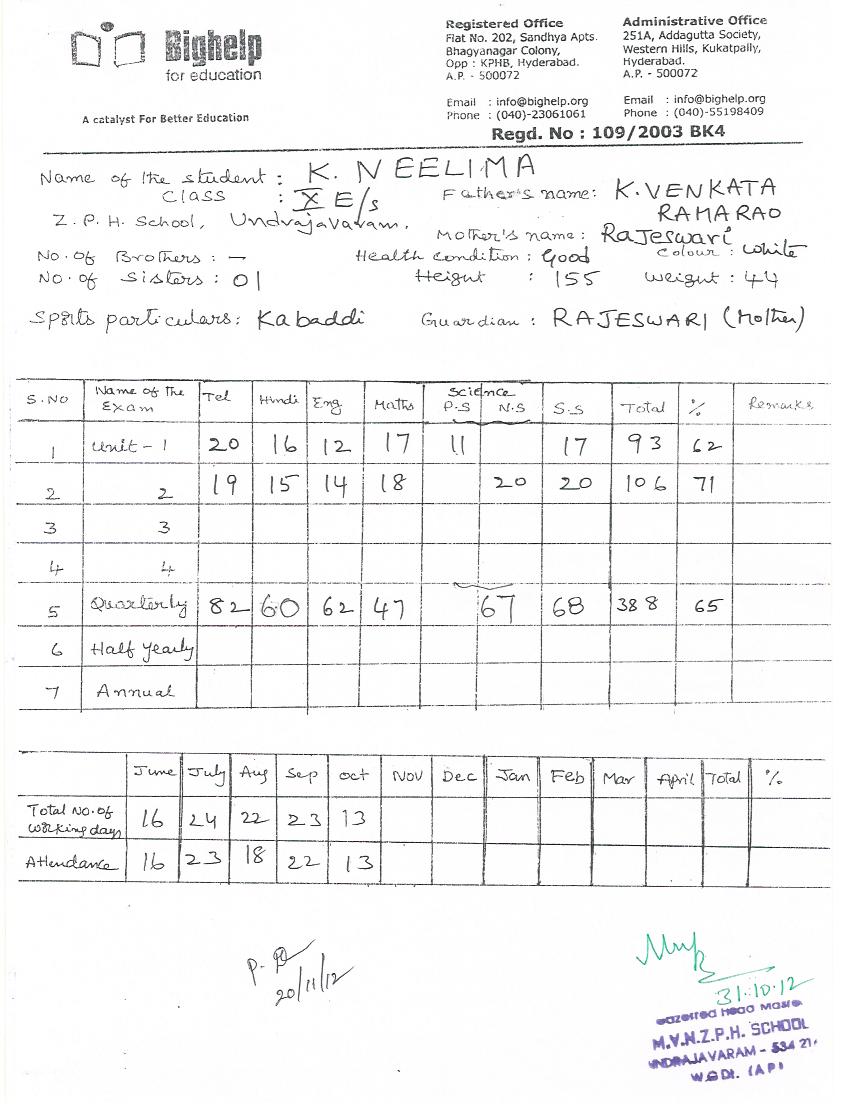 Bighelp
for education
A catalyst For Better Education
Registered Office
Flat No. 202, Sandhya Apts.
Bhagyanagar Colony,
Opp : KPHB, Hyderabad.
A.P. - 500072
Email : info@bighelp.org
Phone : (040)-23061061
Administrative Office
251A, Addagutta Society,
Western Hills, Kukatpally,
Hyderabad.
A.P. - 500072
Email : info@bighelp.org
Phone : (040)-55198409
Regd. No : 109/2003 BK4
Name of the student : K. NEELIMA
Class : X E/s Father's name: K.VENKATA
RAMA RAO
Z.P.H. School, Undrajavaram. Mother's name : Rajeswari
No. of Brothers : — Health condition : Good Colour : White
No. of Sisters : 01 Height : 155 Weight : 44
Sports particulars: Kabaddi Guardian : RAJESWARI (Mother)
S.NO Name of the Exam Tel Hindi Eng Maths Science P.S N.S S.S Total % Remarks
1 Unit - 1 20 16 12 17 11 17 93 62
2 2 19 15 14 18 20 20 106 71
3 3
4 4
5 Quarterly 82 60 62 47 67 68 388 65
6 Half Yearly
7 Annual
June July Aug Sep Oct Nov Dec Jan Feb Mar April Total %
Total No. of working days 16 24 22 23 13
Attendance 16 23 18 22 13
20/11/12
31.10.12
Gazetted Head Maste
M.V.N.Z.P.H. SCHOOL
UNDRAJAVARAM - 534 21
W.G Dt. (A P)